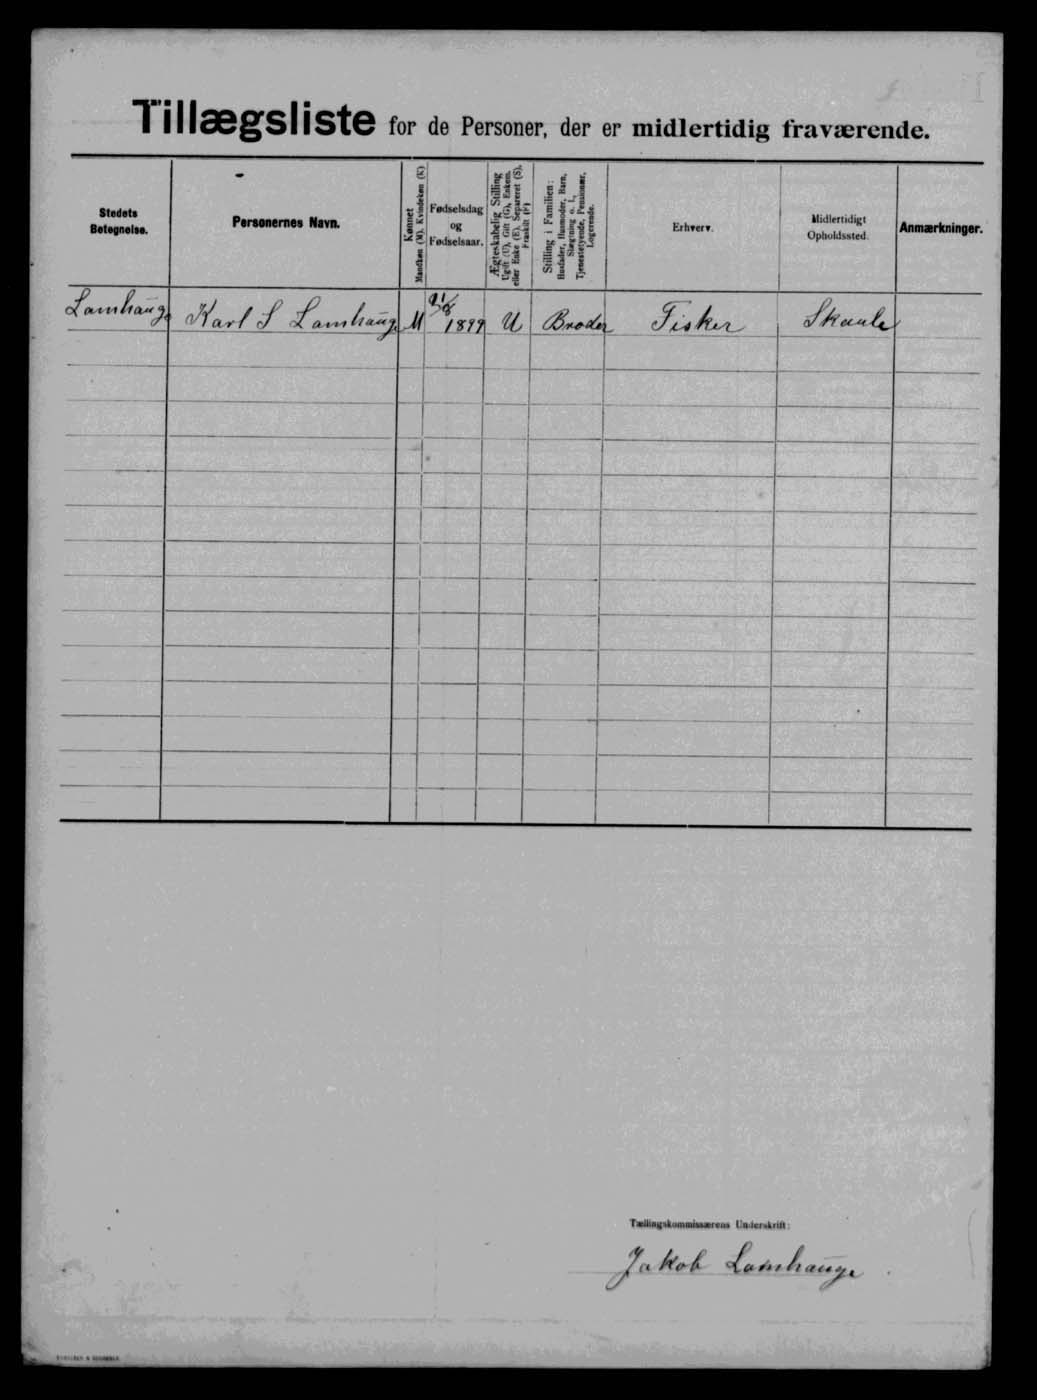 Tillægsliste for de Personer, der er midlertidig fraværende.
Stedets
Betegnelse.
Personernes Navn.
Kønnet
Mandkøn (M). Kvindekøn (K)
Fødselsdag
og
Fødselsaar.
Ægteskabelig Stilling
Ugift (U), Gift (G), Enkem.
eller Enke (E), Separeret (S),
Fraskilt (F)
Stilling i Familien:
Husfader, Husmoder, Barn,
Slægtning o. l.,
Tjenestetyende, Pensionær,
Logerende.
Erhverv.
Midlertidigt
Opholdssted.
Anmærkninger.
Lamhauge Karl S Lamhauge M 21/8 1899 U Broder Fisker Skaale
Tællingskommissærens Underskrift:
Jakob Lamhauge